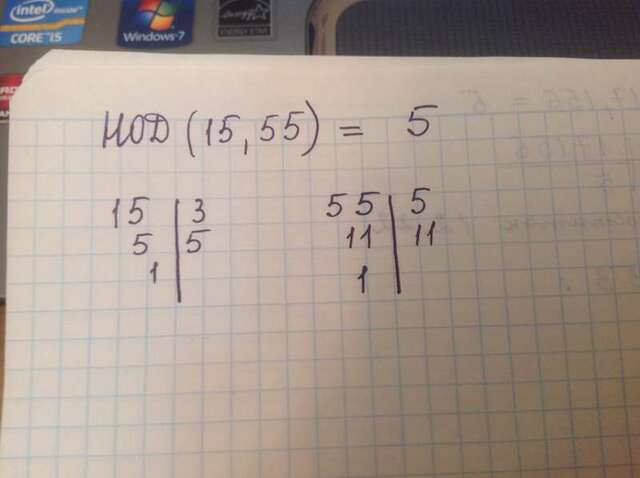 intel inside™
CORE™ i5
Windows® 7
ENERGY STAR
НОД (15, 55) = 5
15 | 3
5 | 5
1 |
55 | 5
11 | 11
1 |